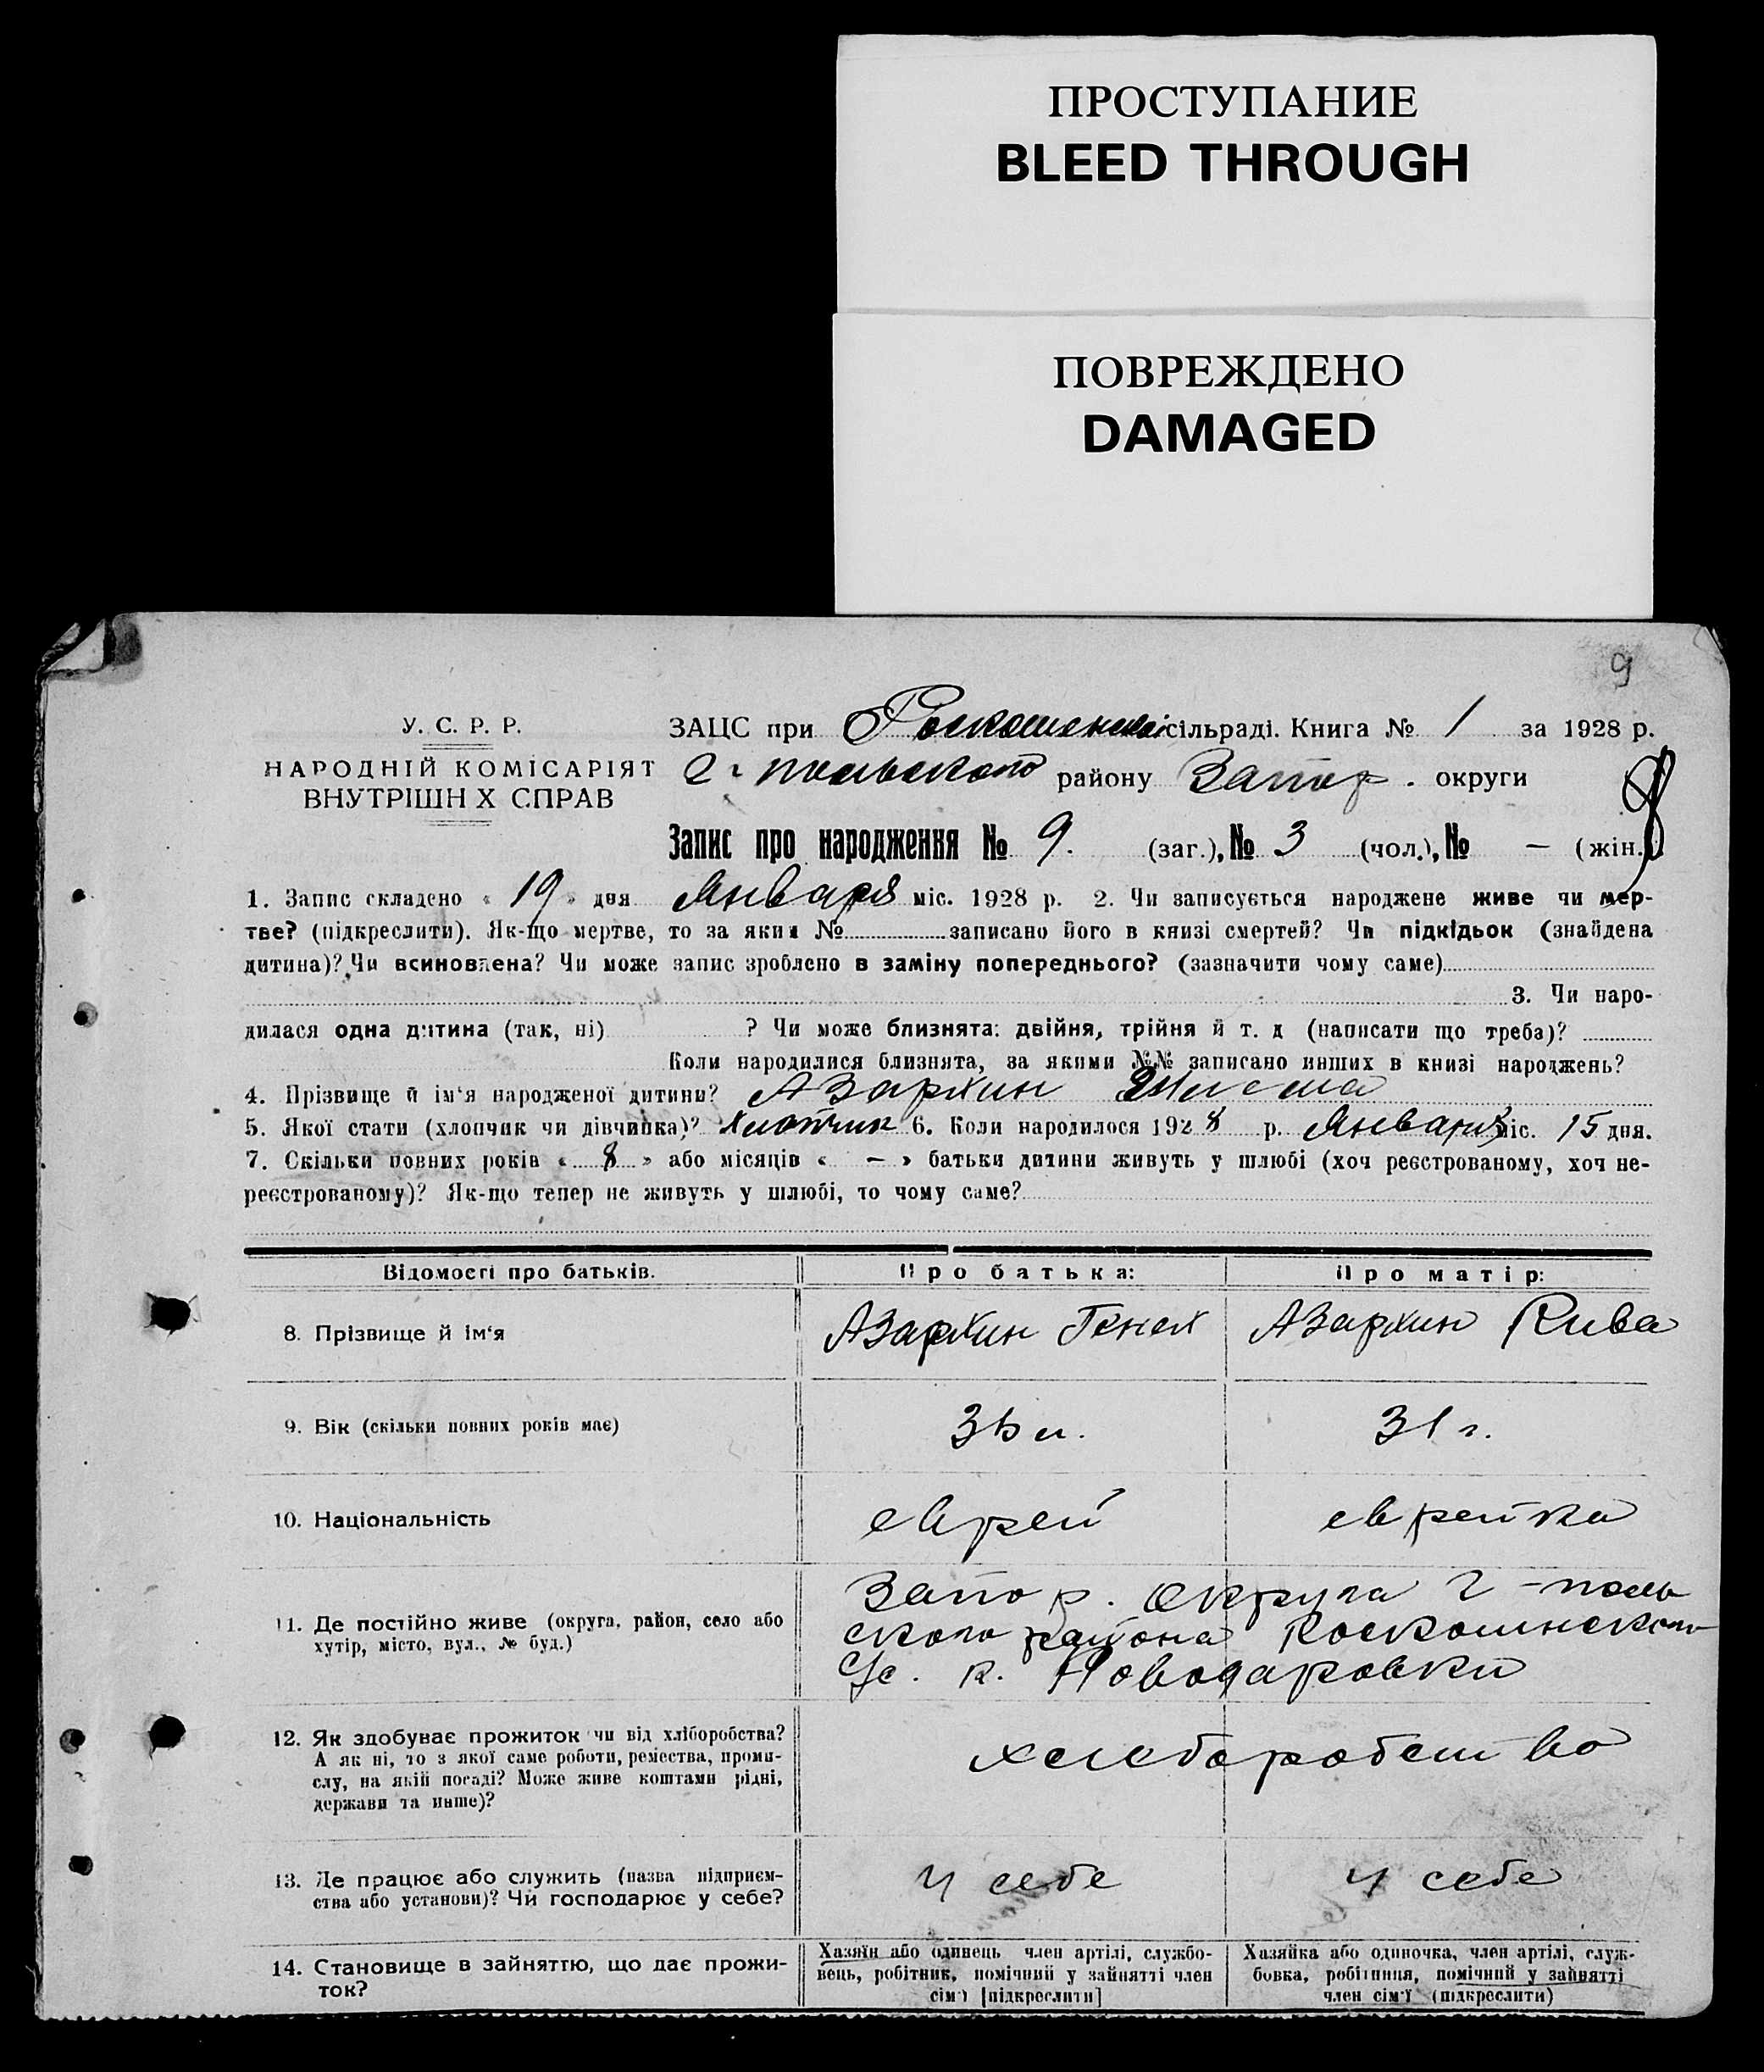 ПРОСТУПАНИЕ
BLEED THROUGH
ПОВРЕЖДЕНО
DAMAGED
9
У. С. Р. Р.
НАРОДНІЙ КОМІСАРІЯТ
ВНУТРІШН Х СПРАВ
ЗАЦС при Роскошенской сільраді. Книга № 1 за 1928 р.
г-польского району Запор. округи
Запис про народження № 9. (заг.), № 3 (чол.), № — (жін.)
1. Запис складено « 19 » дня Января міс. 1928 р. 2. Чи записується народжене живе чи мер-
тве? (підкреслити). Як-що мертве, то за яким № записано його в книзі смертей? Чи підкідьок (знайдена
дитина)? Чи всиновлена? Чи може запис зроблено в заміну попереднього? (зазначити чому саме)
3. Чи наро-
дилася одна дитина (так, ні) ? Чи може близнята: двійня, трійня й т. д (написати що треба)?
Коли народилися близнята, за якими №№ записано инших в книзі народжень?
4. Прізвище й ім'я народженої дитини? Азархин
5. Якої стати (хлопчик чи дівчинка)? Хлопчик 6. Коли народилося 1928 р. Января міс. 15 дня.
7. Скільки повних років « 8 » або місяців « — » батьки дитини живуть у шлюбі (хоч реєстрованому, хоч не-
реєстрованому)? Як-що тепер не живуть у шлюбі, то чому саме?
Відомості про батьків. Про батька: Про матір:
8. Прізвище й ім'я Азархин Генех Азархин Рива
9. Вік (скільки повних років має) л. 31 г.
10. Національність еврей еврейка
11. Де постійно живе (округа, район, село або
хутір, місто, вул., № буд.)
Запор. округа Г-поль
ского района Роскошинского
с/с. к. Новодаровки
12. Як здобуває прожиток чи від хліборобства?
А як ні, то з якої саме роботи, ремества, проми-
слу, на якій посаді? Може живе коштами рідні,
держави та инше)?
хлеборобство
13. Де працює або служить (назва підприєм-
ства або установи)? Чи господарює у себе?
у себе у себе
14. Становище в зайняттю, що дає прожи-
ток?
Хазяїн або одинець член артілі, службо-
вець, робітник, помічний у зайнятті член
сім'ї [підкреслити]
Хазяйка або одиночка, член артілі, служ-
бовка, робітниця, помічний у зайнятті
член сім'ї (підкреслити)